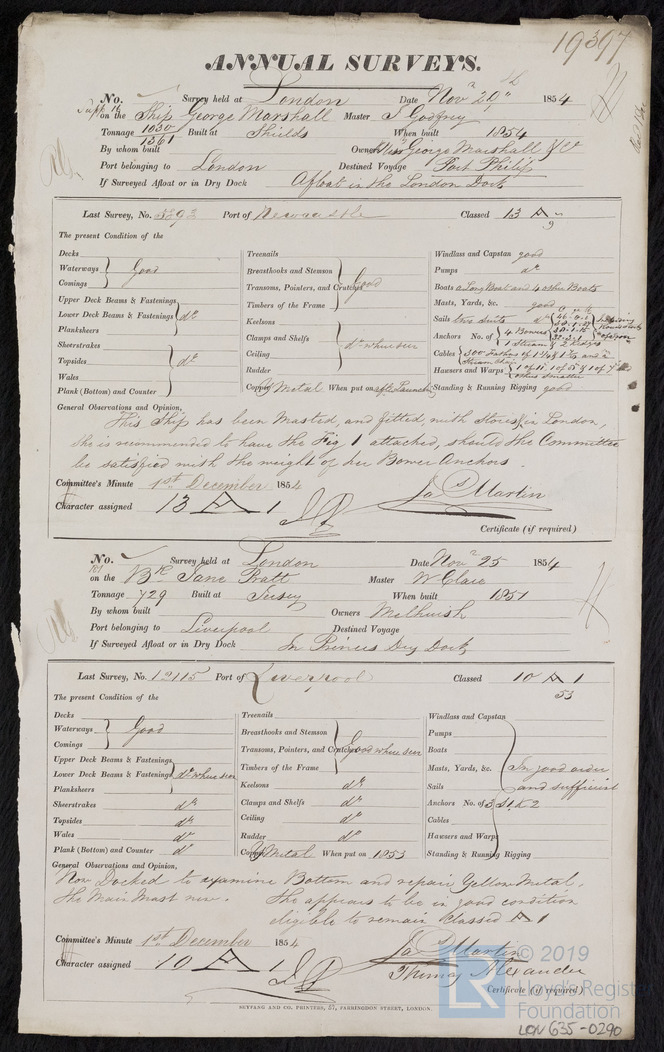 19397
ANNUAL SURVEYS.
No. Survey held at London Date Novr 29th 1854
on the Ship George Marshall Master J Godfrey
Tonnage 1030 1361 Built at Shields When built 1854
By whom built Owners George Marshall & Co
Port belonging to London Destined Voyage Port Philip
If Surveyed Afloat or in Dry Dock Afloat in the London Dock
Last Survey, No. Port of Newcastle Classed 13 A
The present Condition of the
Decks
Waterways Good
Comings
Upper Deck Beams & Fastenings
Lower Deck Beams & Fastenings do
Planksheers
Sheerstrakes
Topsides do
Wales
Plank (Bottom) and Counter
Treenails
Breasthooks and Stemson
Transoms, Pointers, and Crutches Good
Timbers of the Frame
Keelsons
Clamps and Shelfs do where seen
Ceiling
Rudder
Copper Y Metal When put on after Launching
Windlass and Capstan good
Pumps do
Boats a Long Boat and 4 other Boats
Masts, Yards, &c. good
Sails two suits do
Anchors No. of 4 Bowers 1 Stream & 2 Kedges
Cables 300 fathoms of
Hawsers and Warps
Standing & Running Rigging good
General Observations and Opinion,
This Ship has been Masted, and fitted with Stores in London,
She is recommended to have the Fig 1 attached, should the Committee
be satisfied with the weight of her Bower Anchors.
Committee's Minute 1st December 1854
Character assigned 13 A 1
Jas Martin
Certificate (if required)
No. Survey held at London Date Novr 25 1854
on the Bk Jane Pratt Master W Clare
Tonnage 729 Built at Jersey When built 1851
By whom built Owners Melhuish
Port belonging to Liverpool Destined Voyage
If Surveyed Afloat or in Dry Dock In Princes Dry Dock
Last Survey, No. 12115 Port of Liverpool Classed 10 A 1
53
The present Condition of the
Decks
Waterways Good
Comings
Upper Deck Beams & Fastenings
Lower Deck Beams & Fastenings do where seen
Planksheers
Sheerstrakes do
Topsides do
Wales do
Plank (Bottom) and Counter do
Treenails
Breasthooks and Stemson
Transoms, Pointers, and Crutches Good where seen
Timbers of the Frame
Keelsons do
Clamps and Shelfs do
Ceiling do
Rudder do
Copper Y Metal When put on 1853
Windlass and Capstan
Pumps
Boats
Masts, Yards, &c. In good order
Sails and sufficient
Anchors No. of 3 S1 K2
Cables
Hawsers and Warps
Standing & Running Rigging
General Observations and Opinion,
Now Docked to examine Bottom and repair Yellow Metal.
The Main Mast new. She appears to be in good condition
eligible to remain Classed A 1
Committee's Minute 1st December 1854
Character assigned 10 A 1
Jas Martin
Thomas Alexander
Certificate (if required)
SEYFANG AND CO. PRINTERS, 57, FARRINGDON STREET, LONDON.
© 2019
LR Lloyd's Register
Foundation
LON 635-0290